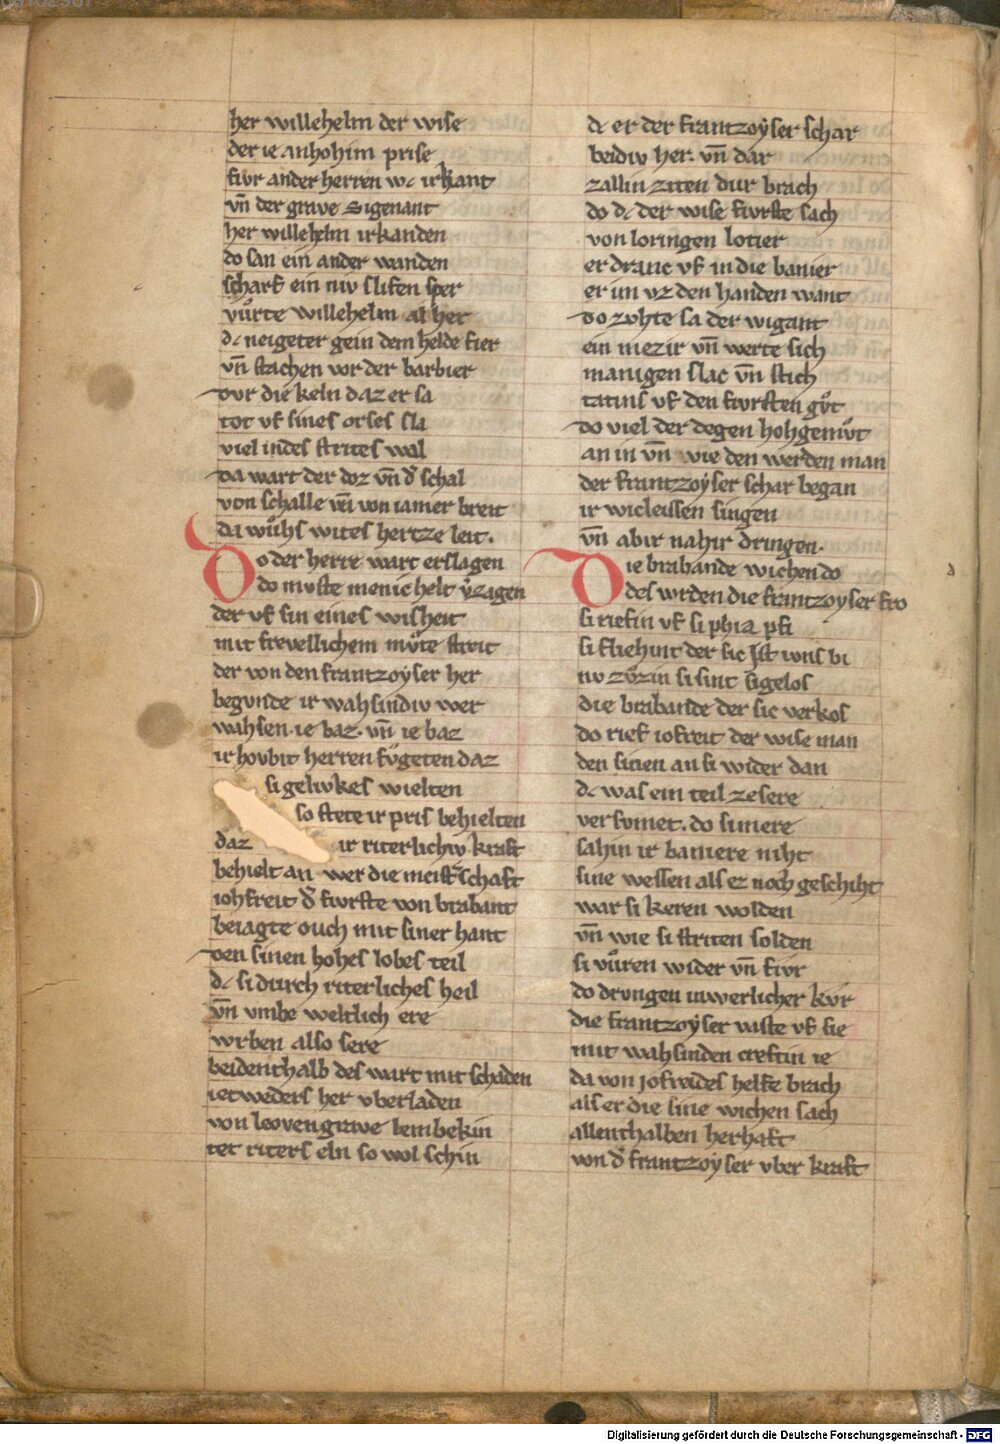 her willehelm der wise
der ie an hohim prise
fivr ander herren wc irkant
vn̄ der grave Sigenant
her willehelm irkanden
do san ein ander wanden
scharf ein niv slifen sper
vůrte willehelm al her
dc neigeter gein dem helde fier
vn̄ stachen vor der barbier
dvr die keln daz er sa
tot vf sines orses sla
viel in des strites wal
da wart der doz vn̄ d' schal
von schalle vn̄ von iamer breit
da wůhs wites hertze leit.
Do der herre wart erslagen
do mvste menic helt v̈zagen
der vf sin eines wisheit
mit frevellichem můte streit
der von den frantzoẏser her
begvnde ir wahsindiv wer
wahsen ie baz. vn̄ ie baz
ir hovbit herren fůgeten daz
si gelivkes wielten
so stete ir pris behielten
daz ir riterlichiv kraft
behielt an wer die meist'schaft
iohfreit d' fivrste von brabant
beiagte ouch mit siner hant
den sinen hohes lobes teil
dc si durch riterliches heil
vn̄ vmbe weltlich ere
wrben also sere
beidenthalb des wart mit schaden
ietweders her vberladen
von looven grave lembekin
tet riters eln so wol schin
dc er der frantzoẏser schar
beidiv her. vn̄ dar
zallin ziten dur brach
do dc der wise fivrste sach
von loringen lotier
er dranc vf in die banier
er im vz den handen want
do zohte sa der wigant
ein mezir vn̄ werte sich
manigen slac vn̄ stich
tatins vf den fivrsten gůt
do viel der degen hohgemůt
an in vn̄ wie den werden man
der frantzoẏser schar began
ir wicleissen singen
vn̄ abir nahir dringen.
Die brabande wichen do
des wrden die frantzoyser fro
si riefin vf si phia pfi
si fliehint der sic Ist vns bi
nv zv̊zin si sint sigelos
die brabande der sic verkos
do rief iofreit der wise man
den sinen an si wider dan
dc was ein teil ze sere
versvmet. do sinere
sahin ir baniere niht
sine wessen als ez noch geschiht
war si keren wolden
vn̄ wie si striten solden
si vůren wider vn̄ fivr
do drvngen inwerlicher kvr
die frantzoẏser vaste vf sie
mit wahsinden creftin ie
da von iofreides helfe brach
als er die sine wichen sach
allenthalben herhaft
von d' frantzoẏser vber kraft
Digitalisierung gefördert durch die Deutsche Forschungsgemeinschaft - DFG